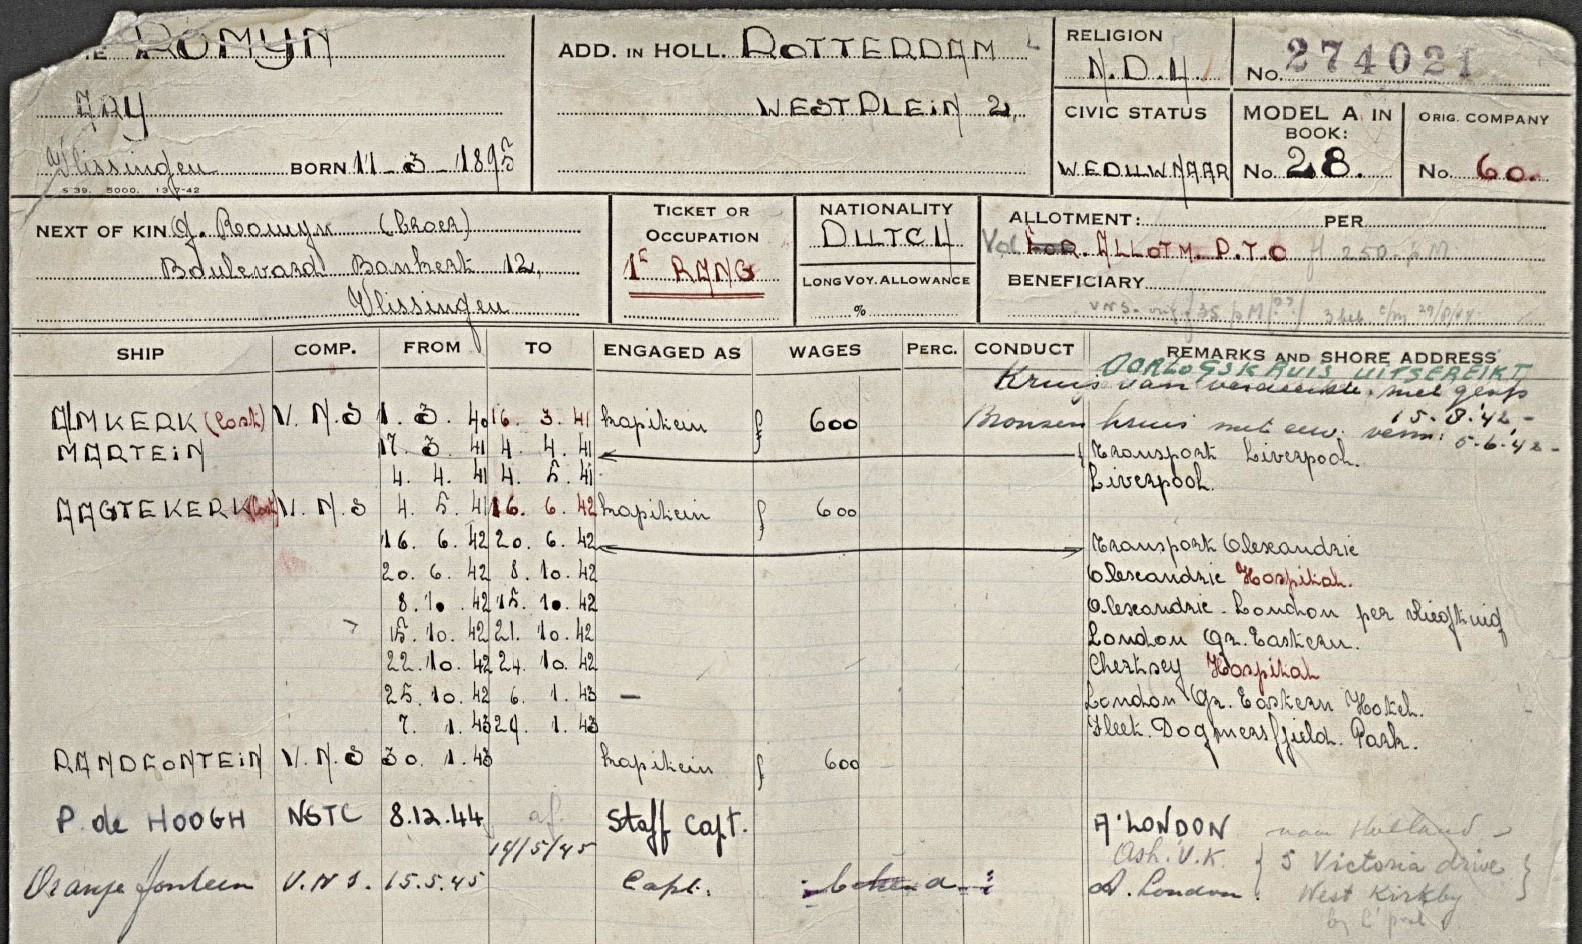 ROMYN
ARY
Vlissingen BORN 11-3-1895
S 39. 5000. 13-7-42
ADD. IN HOLL. ROTTERDAM
WESTPLEIN 2.
RELIGION
N.D.H.
No. 274021
CIVIC STATUS
WEDUWNAAR
MODEL A IN BOOK:
No. 28.
ORIG. COMPANY
No. 60.
NEXT OF KIN J. Romyn (broer)
Boulevard Bankert 12,
Vlissingen
TICKET OR OCCUPATION
1e RANG
NATIONALITY
DUTCH
LONG VOY. ALLOWANCE
%
ALLOTMENT: PER
Vol. ALLOTM. P.T.O fl 250. p M
BENEFICIARY
35 p M 29/8/44
SHIP COMP. FROM TO ENGAGED AS WAGES PERC. CONDUCT REMARKS AND SHORE ADDRESS
OORLOGSKRUIS UITGEREIKT
Kruis van verdienste met gesp
15-8-'42-
ALMKERK (Lost) V.N.S 1. 3. 40 16. 3. 41 kapitein 600 Bronzen kruis met eerv. verm: 5-6-'42-
MARTEIN 17. 3. 41 4. 4. 41 Transport Liverpool.
4. 4. 41 4. 5. 41 Liverpool.
AAGTEKERK (Lost) V.N.S 4. 5. 41 16. 6. 42 kapitein 600
16. 6. 42 20. 6. 42 Transport Alexandrie
20. 6. 42 8. 10. 42 Alexandrie Hospital.
8. 10. 42 15. 10. 42 Alexandrie - London per vliegtuig
15. 10. 42 21. 10. 42 London Gr. Eastern.
22. 10. 42 24. 10. 42 Chertsey Hospital
25. 10. 42 6. 1. 43 — London Gr. Eastern Hotel.
7. 1. 43 29. 1. 43 Fleet. Dogmersfield. Park.
RANDFONTEIN V.N.S 30. 1. 43 kapitein 600
P. de HOOGH NSTC 8.12.44 af. Staff Capt. A' LONDON naar Holland
14/5/45 Ash. V.K. 5 Victoria drive
Oranje fontein V.N.S. 15.5.45 Capt. A. London. West Kirkby
by L'pool